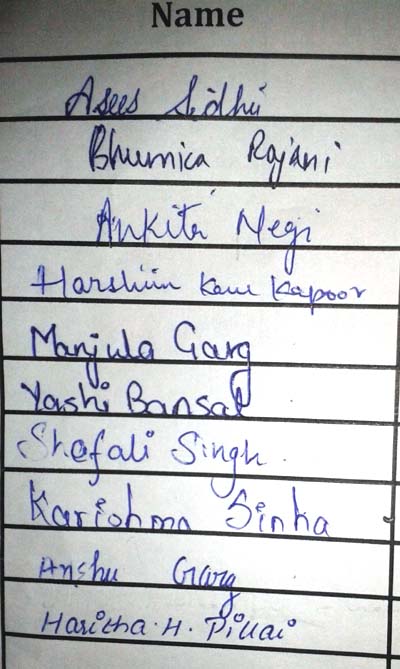 Name
Asees Sidhu
Bhumica Rajani
Ankita Negi
Harshiin Kaur Kapoor
Manjula Garg
Yashi Bansal
Shefali Singh
Karishma Sinha
Anshu Garg
Haritha. H. Pillai